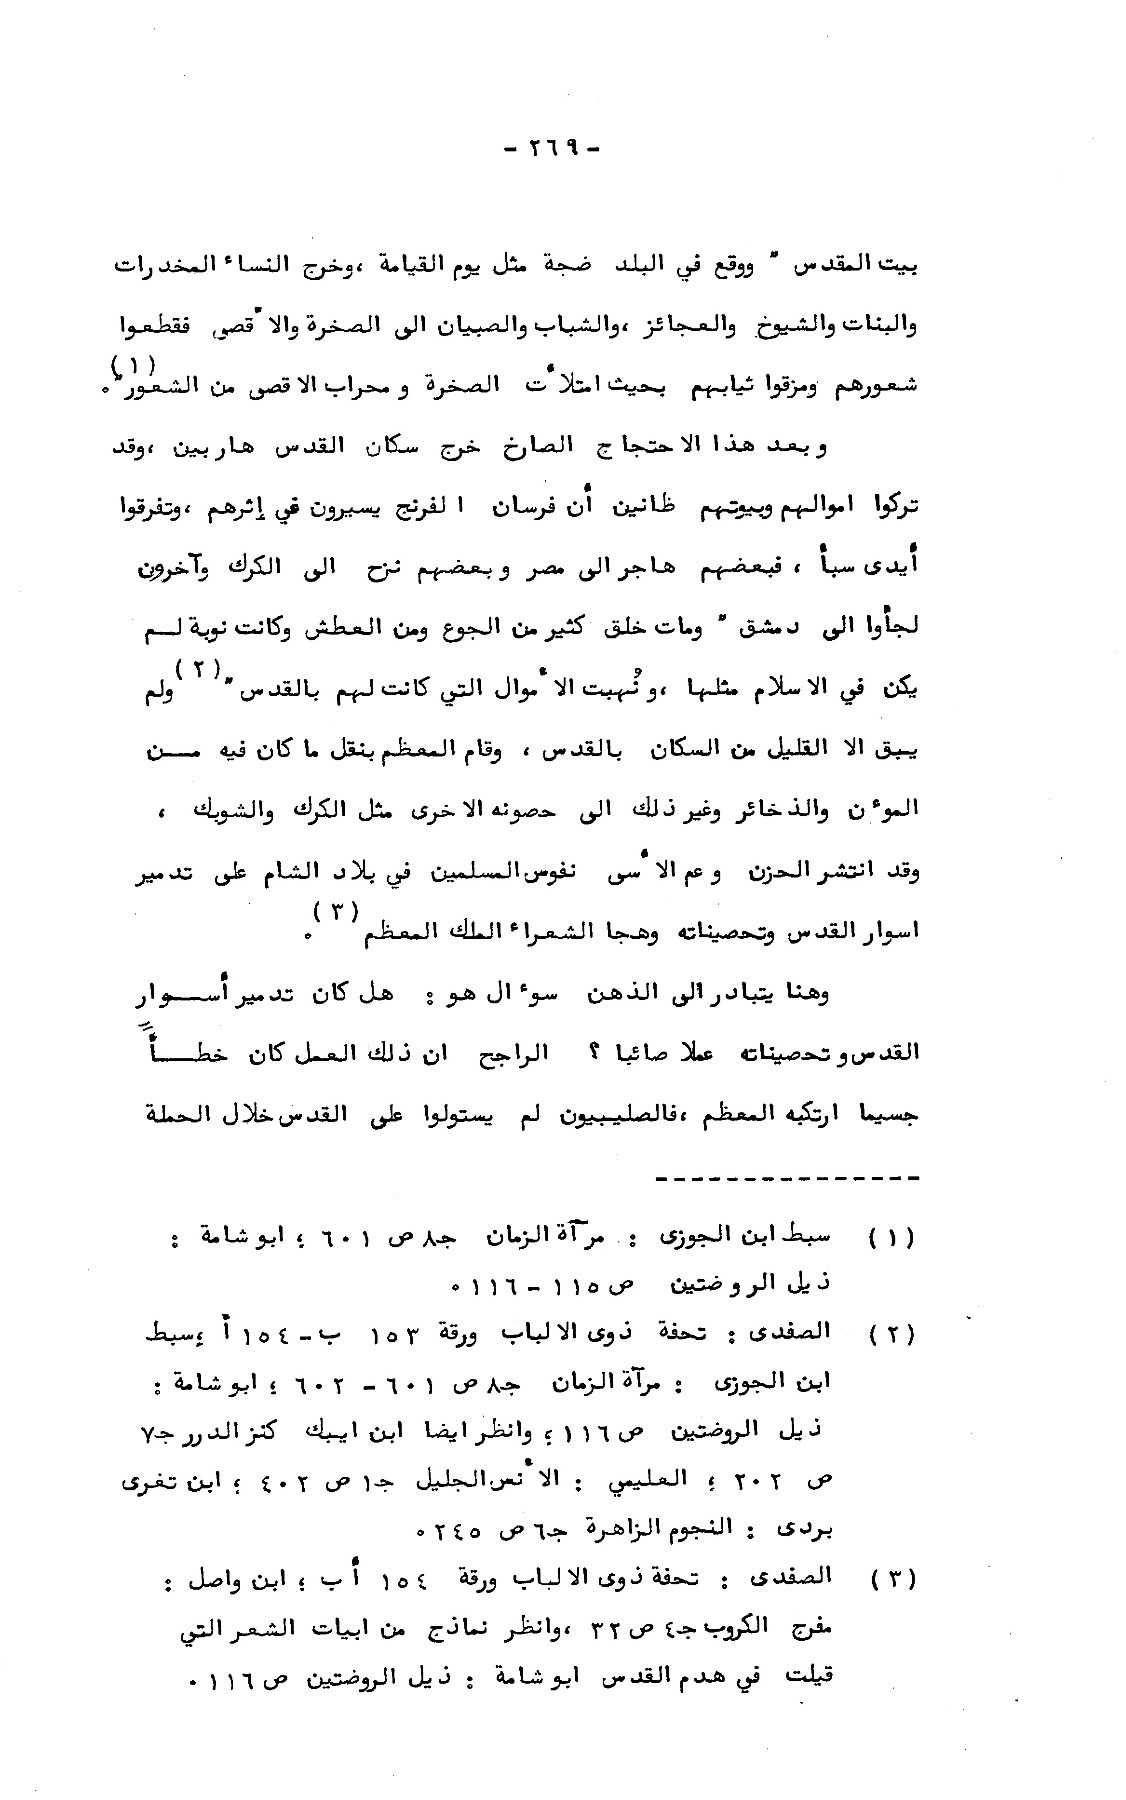 - ٢٦٩ -
بيت المقدس " ووقع في البلد ضجة مثل يوم القيامة ،وخرج النساء المخدرات
والبنات والشيوخ والعجائز ،والشباب والصبيان الى الصخرة والأقصى فقطعوا
شعورهم ومزقوا ثيابهم بحيث امتلأت الصخرة ومحراب الاقصى من الشعور"(١).
وبعد هذا الاحتجاج الصارخ خرج سكان القدس هاربين ،وقد
تركوا اموالهم وبيوتهم ظانين أن فرسان الفرنج يسيرون في إثرهم ،وتفرقوا
أيدى سبأ ، فبعضهم هاجر الى مصر وبعضهم نزح الى الكرك وآخرون
لجأوا الى دمشق " ومات خلق كثير من الجوع ومن العطش وكانت نوبة لـم
يكن في الاسلام مثلها ،ونُهبت الأموال التي كانت لهم بالقدس"(٢) ولم
يبق الا القليل من السكان بالقدس ، وقام المعظم بنقل ما كان فيه مـــن
المؤن والذخائر وغير ذلك الى حصونه الاخرى مثل الكرك والشوبك ،
وقد انتشر الحزن وعم الأسى نفوس المسلمين في بلاد الشام على تدمير
اسوار القدس وتحصيناته وهجا الشعراء الملك المعظم(٣).
وهنا يتبادر الى الذهن سؤال هو : هل كان تدمير أســـوار
القدس وتحصيناته عملا صائبا ؟ الراجح ان ذلك العمل كان خطــأً
جسيما ارتكبه المعظم ،فالصليبيون لم يستولوا على القدس خلال الحملة
---------------
(١) سبط ابن الجوزى : مرآة الزمان جـ٨ ص ٦٠١ ؛ ابو شامة :
ذيل الروضتين ص ١١٥ - ١١٦ .
(٢) الصفدى : تحفة ذوى الالباب ورقة ١٥٣ ب - ١٥٤ أ ؛سبط
ابن الجوزى : مرآة الزمان جـ٨ ص ٦٠١ - ٦٠٢ ؛ ابو شامة :
ذيل الروضتين ص ١١٦ ؛ وانظر ايضا ابن ايبك كنز الدرر جـ٧
ص ٢٠٢ ؛ العليمي : الأنس الجليل جـ١ ص ٤٠٢ ؛ ابن تغرى
بردى : النجوم الزاهرة جـ٦ ص ٢٤٥ .
(٣) الصفدى : تحفة ذوى الالباب ورقة ١٥٤ أ ب ؛ ابن واصل :
مفرج الكروب جـ٤ ص ٣٢ ،وانظر نماذج من ابيات الشعر التي
قيلت في هدم القدس ابو شامة : ذيل الروضتين ص ١١٦ .